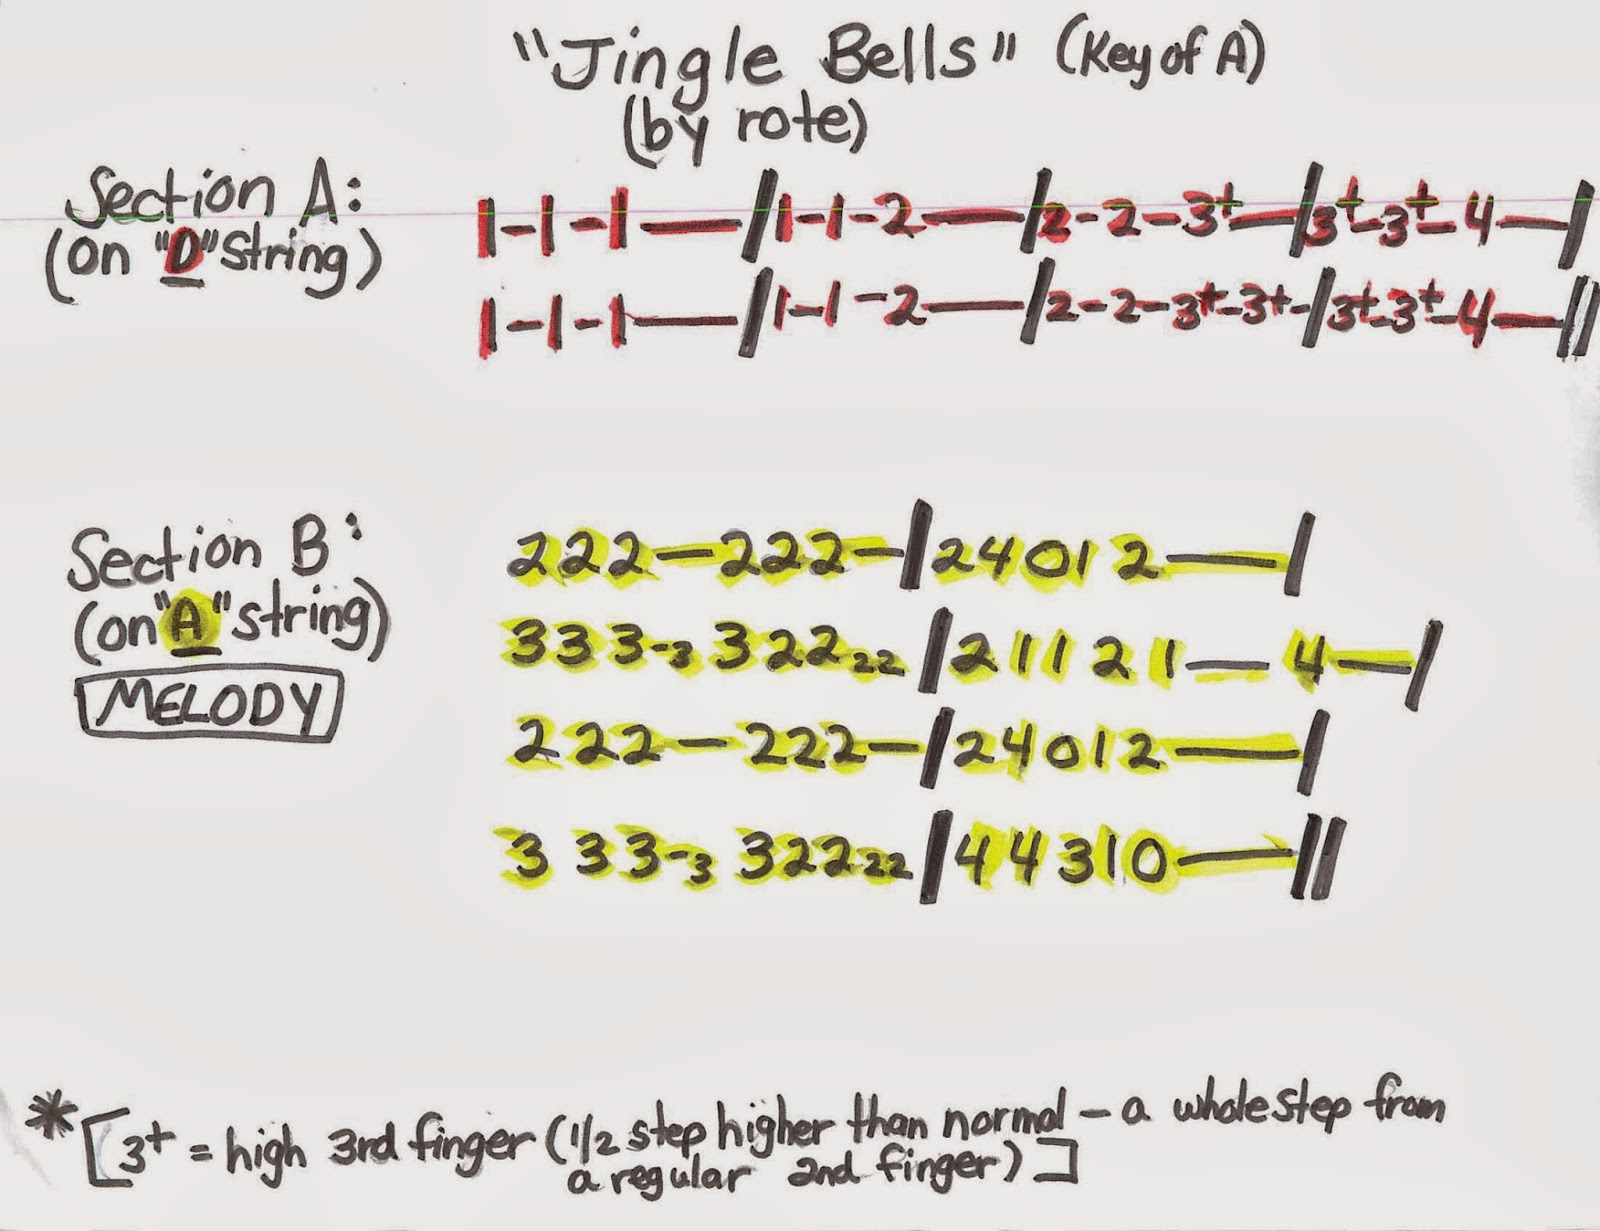 "Jingle Bells" (Key of A)
(by rote)
Section A: 1-1-1—/1-1-2—/2-2-3+—/3+-3+-4—/
(on "D" string) 1-1-1—/1-1-2—/2-2-3+-3+-/3+-3+-4—//
Section B: 222—222—/24012—/
(on "A" string) 333-3 32222/21121— 4—/
MELODY 222—222—/24012—/
333-3 32222/44310—//
* [3+ = high 3rd finger (1/2 step higher than normal - a whole step from
a regular 2nd finger)]